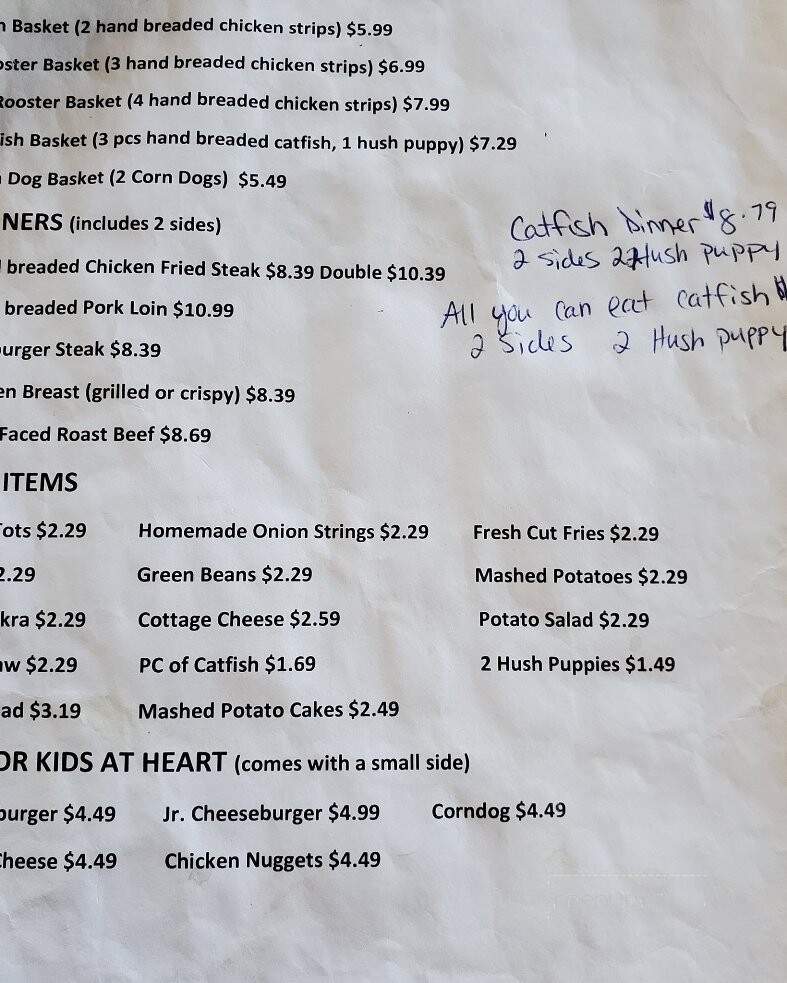 Basket (2 hand breaded chicken strips) $5.99
ster Basket (3 hand breaded chicken strips) $6.99
Rooster Basket (4 hand breaded chicken strips) $7.99
ish Basket (3 pcs hand breaded catfish, 1 hush puppy) $7.29
Dog Basket (2 Corn Dogs) $5.49
NERS (includes 2 sides)
Catfish Dinner $8.79
2 sides 2 Hush puppy
breaded Chicken Fried Steak $8.39 Double $10.39
All you can eat catfish $
2 Sides 2 Hush puppy
breaded Pork Loin $10.99
urger Steak $8.39
en Breast (grilled or crispy) $8.39
Faced Roast Beef $8.69
ITEMS
ots $2.29 Homemade Onion Strings $2.29 Fresh Cut Fries $2.29
2.29 Green Beans $2.29 Mashed Potatoes $2.29
kra $2.29 Cottage Cheese $2.59 Potato Salad $2.29
aw $2.29 PC of Catfish $1.69 2 Hush Puppies $1.49
ad $3.19 Mashed Potato Cakes $2.49
OR KIDS AT HEART (comes with a small side)
burger $4.49 Jr. Cheeseburger $4.99 Corndog $4.49
Cheese $4.49 Chicken Nuggets $4.49